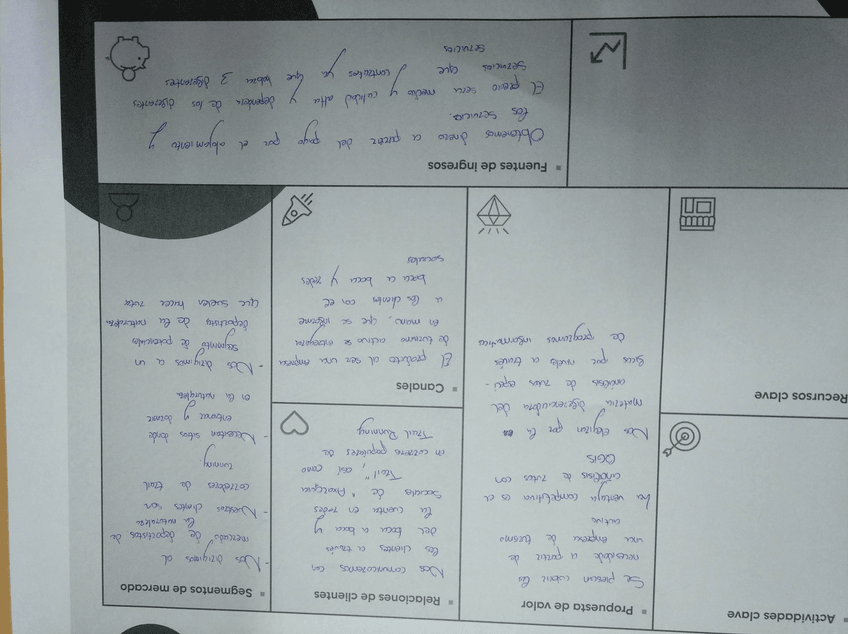 Actividades clave
Propuesta de valor
Se piensan cubrir las
necesidade a partir de
una empresa de turismo
activo
La ventaja competitiva es el
análisis de rutas con
QGIS
Nos eligiran por la
materia diferenciadora del
análisis de rutas espe-
de programas informatica
Relaciones de clientes
Nos comunicaremos con
los clientes a través
del boca a boca y
la cuenta en redes
Sociales de
Trail", así como
en carreras populares de
Trail Running
Segmentos de mercado
- Nos dirigimos al
mercado de deportistas de
la naturaleza
- Nuestros clientes son
corredores de trail
running
- Necesitan sitios donde
entrenar y dormir
en la naturaleza
- Nos dirigimos a un
segmento de potenciales
deportistas de la naturaleza
que suelen hacer rutas
Recursos clave
Canales
El producto al ser una empresa
de turismo activo se entregara
en mano, que se informe
a los clientes con el
boca a boca y redes
sociales
Fuentes de ingresos
Obtenemos dinero a partir del pago por el alojamiento y
los servicios.
El precio sera medio y calidad alta y dependera de los diferentes
servicios que contrates ya que habra 3 diferentes
servicios